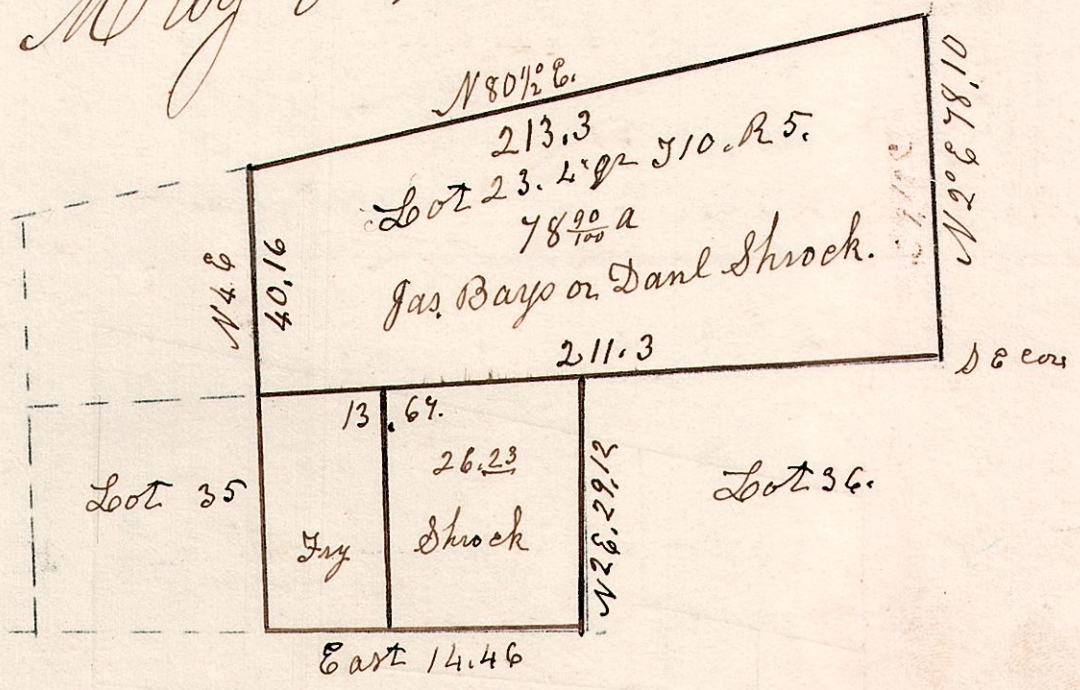 N 80½° E.
213.3
Lot 23. 4 qr T10. R 5.
78 90/100 a
Jas. Bays or Danl Shrock.
N2°E 18.10
N4 E
40.16
211.3
S E cor
13.64.
26.23
Lot 35
Fry
Shrock
N2E. 29.12
Lot 36.
East 14.46